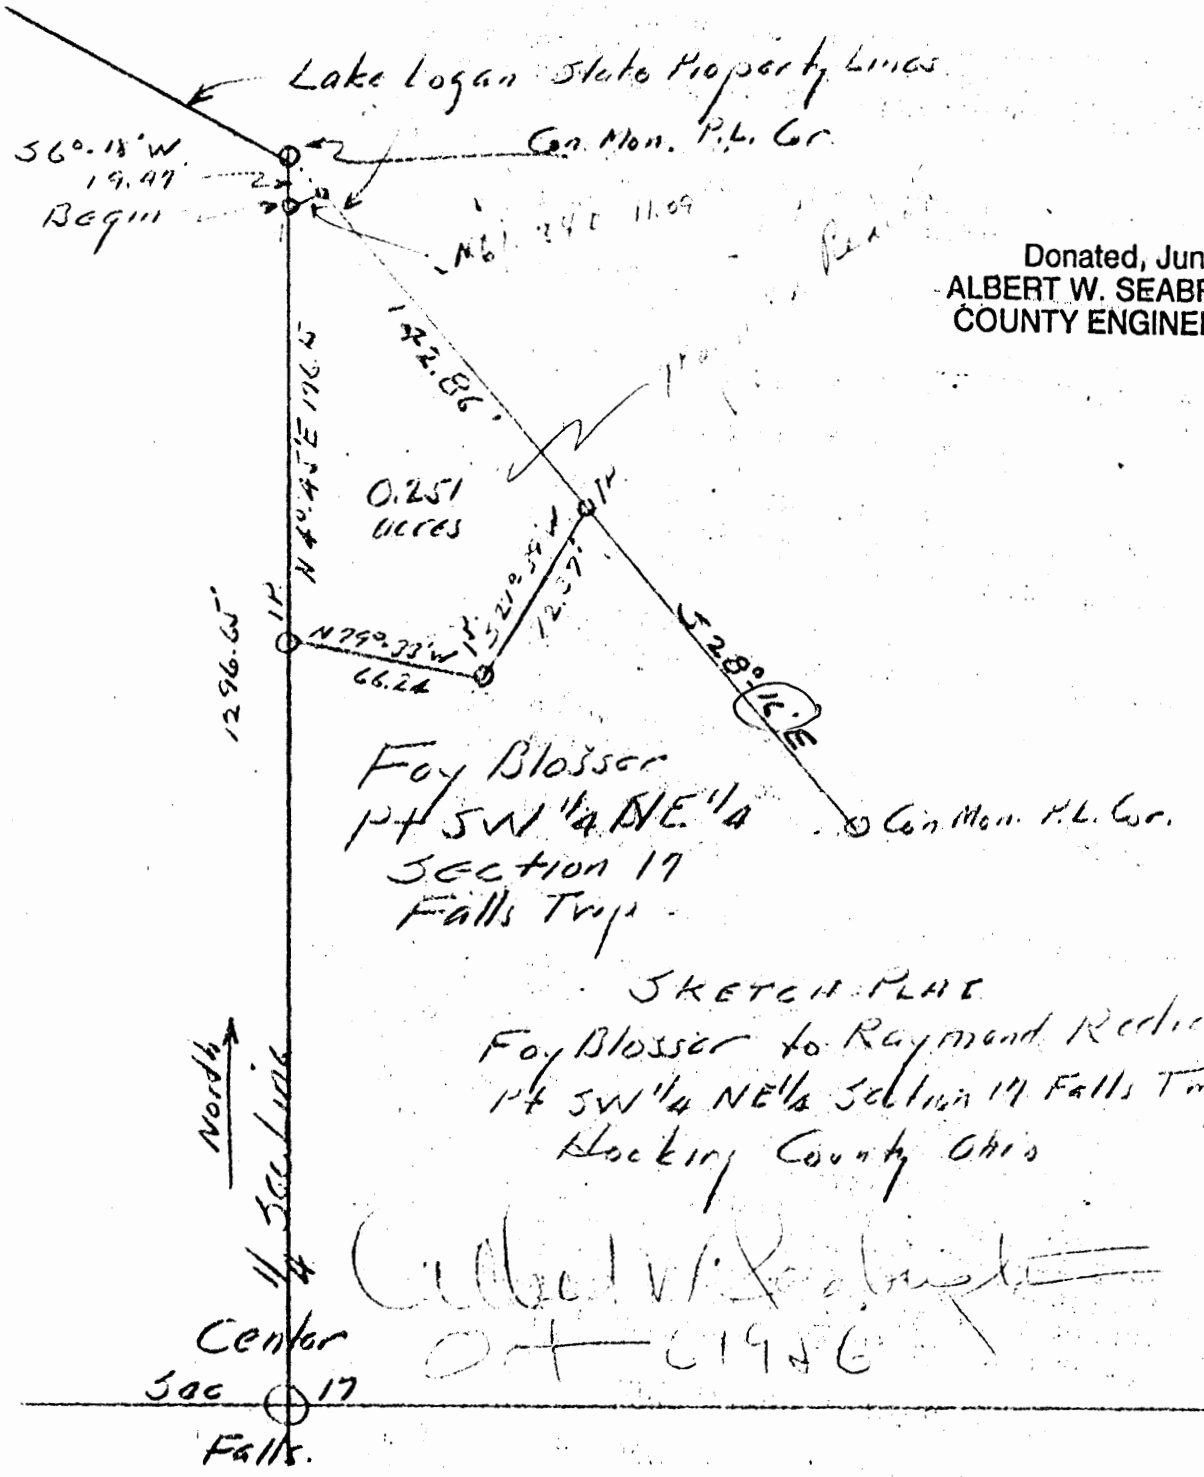 Lake Logan State Property Lines
Con. Mon. P.L. Cor.
S6°-18'W
19.47
Begin
11.09
Donated, Jun
ALBERT W. SEABR
COUNTY ENGINEE
142.86'
N 4°-45'E
0.251
acres
I.P.
S 21°-39'W
I.P.
1296.65'
I.P.
N79°-33'W
66.24
S 28°-16'E
Foy Blosser
Pt SW 1/4 NE 1/4
Section 17
Falls Twp
Con Mon. P.L. Cor.
SKETCH PLAT
Foy Blosser to Raymond
Pt SW 1/4 NE 1/4 Section 17 Falls Tw
Hocking County Ohio
North
1/4 Sec Line
Center
Sec 17
Falls.